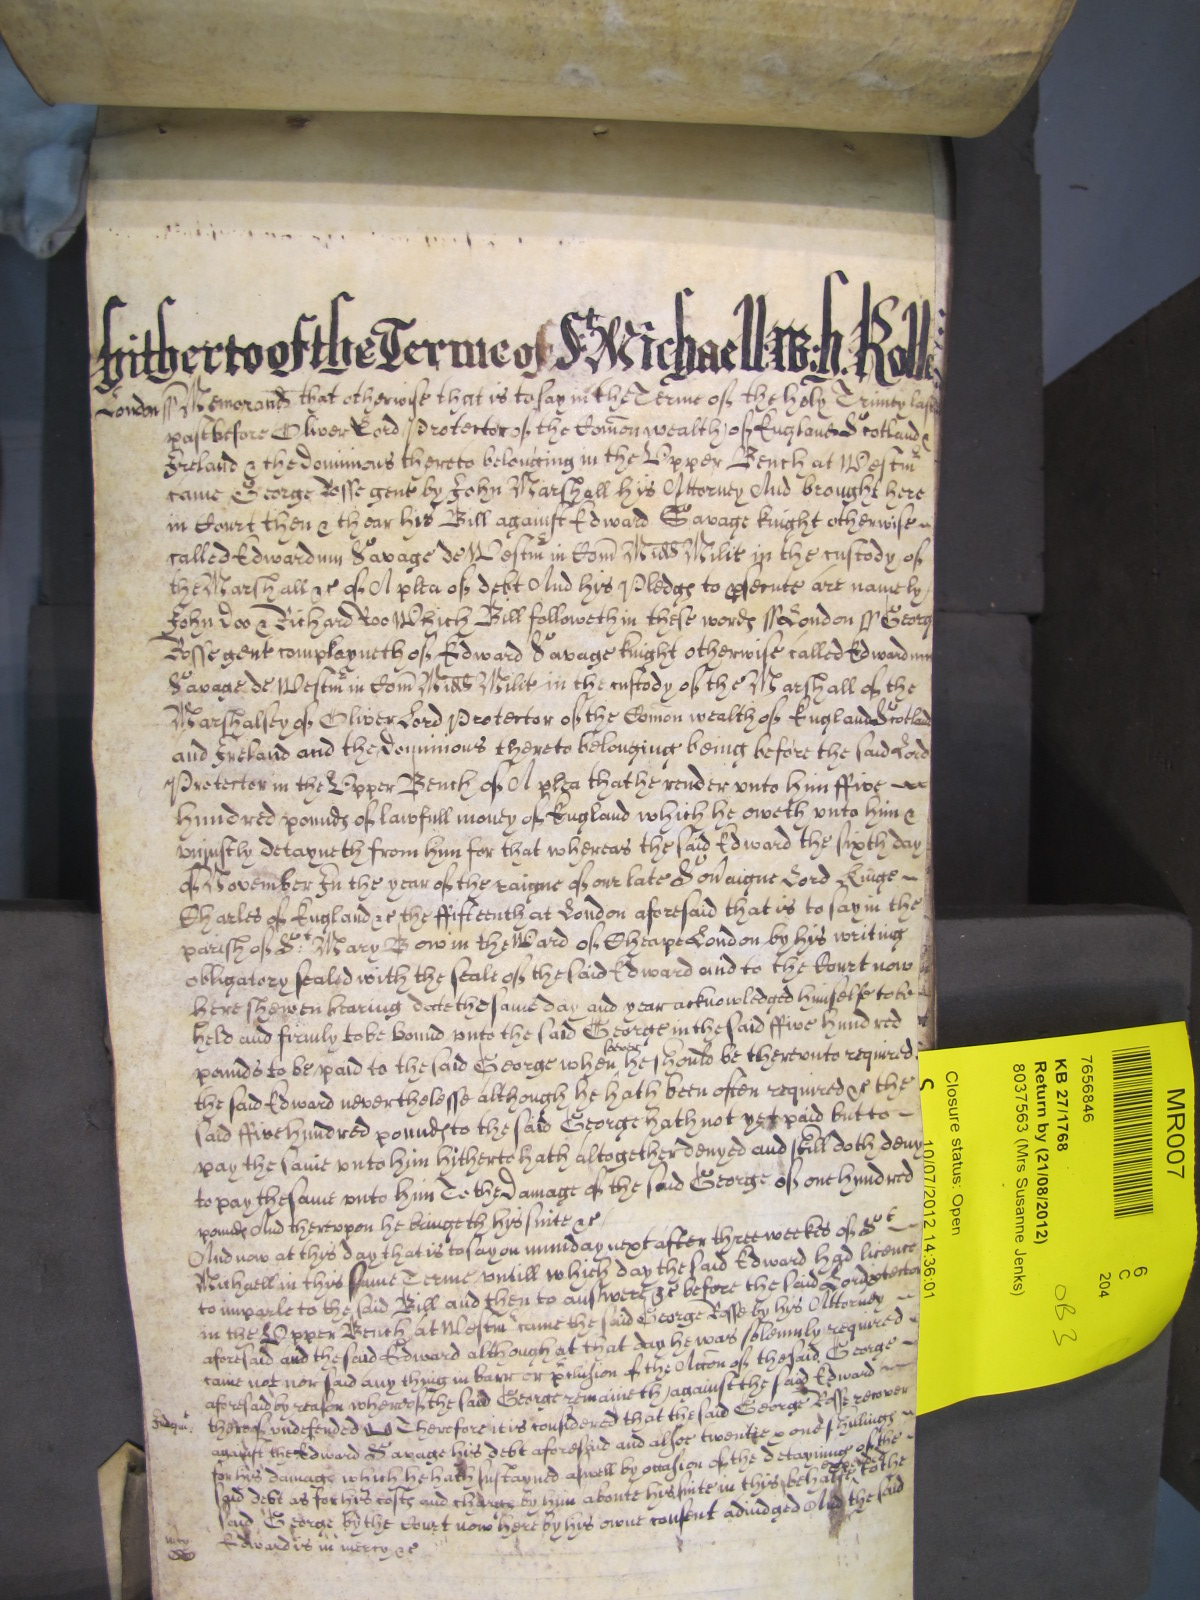 hitherto of the Terme of St Michaell W: h. Rolle
London ss Memorand that otherwise that is to say in the Terme of the holy Trinity last
past before Oliver Lord Protector of the Comon wealth of England Scotland &
Ireland & the dominions thereto belonging in the Upper Bench at Westm
came George Rosse gent by John Marshall his Attorney And brought here
in Court then & thear his Bill against Edward Savage knight otherwise
called Edwardum Savage de Westm in Com Midd Milit in the custody of
the Marshall &c of A plea of debt And his Pledges to psecute are namely
John Doo & Richard Roo Which Bill followeth in these words ss London ss George
Rosse gent complayneth of Edward Savage knight otherwise called Edwardum
Savage de Westm in Com Midd Milit in the custody of the Marshall of the
Marshalsey of Oliver Lord Protector of the Comon wealth of England Scotland
and Ireland and the Dominions thereto belonging being before the said Lord
Protector in the Upper Bench of A plea that he render unto him ffive
hundred pounds of lawfull money of England which he oweth unto him &
uniustly detayneth from him for that whereas the said Edward the sixth day
of November In the year of the raigne of our late Sovaigne Lord Kinge
Charles of England &c the ffifteenth at London aforesaid that is to say in the
parish of St Mary Bow in the Ward of Cheape London by his writing
obligatory sealed with the seale of the said Edward and to the Court now
here shewen bearing date the same day and year acknowledged himselfe to be
held and firmly to be bound unto the said George in the said ffive hundred
pounds to be paid to the said George when soever he should be thereunto required
the said Edward neverthelesse although he hath been often required &c the
said ffive hundred pounds to the said George hath not yet paid but to
pay the same unto him hitherto hath altogether denyed and still doth deny
to pay the same unto him To the Damage of the said George of one hundred
pounds And thereupon he bringeth his suite &c
And now at this day that is to say on munday next after three weekes of St
Michaell in this same Terme untill which day the said Edward had licence
to imparle to the said Bill and then to answere &c before the said Lord ptector
in the Upper Bench at Westm came the said George Rosse by his Attorney
aforesaid and the said Edward although at that day he was solemnly required
came not nor said any thing in barr or pclusion of the Accon of the said George
aforesaid by reason whereof the said George remaineth against the said Edward
Judgm thereof undefended Therefore it is considered that the said George Rosse recover
against the Edward Savage his debt aforesaid and alsoe twentie & one shillings
for his damage which he hath sustayned aswell by occasion of the detayning of the
said debt as for his costs and charge by him aboute his suite in this behalfe expended to the
said George by the Court now here by his owne consent adiudged And the said
mcy Edward is in mercy &c
MR007
6
C
204
7656846
KB 27/1768
Return by (21/08/2012)
8037563 (Mrs Susanne Jenks)
OB 3
Closure status: Open
10/07/2012 14:36:01